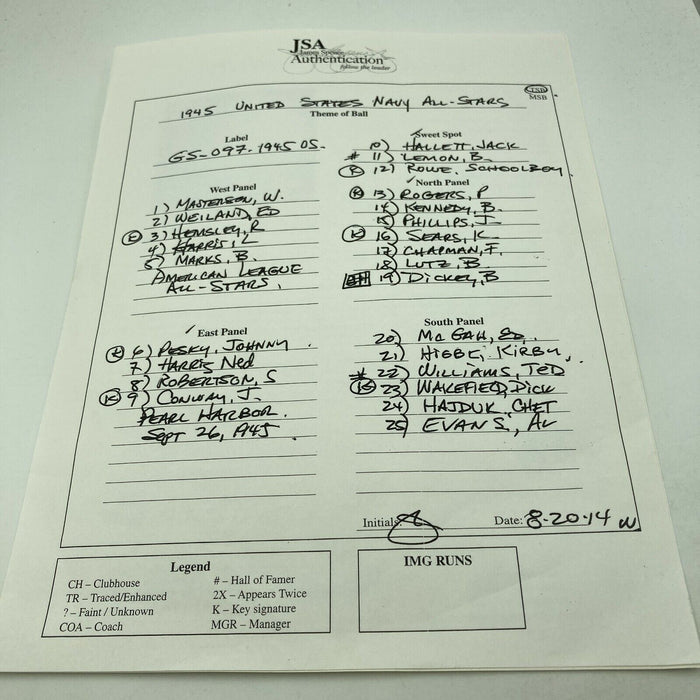 JSA
James Spence
Authentication
follow the leader
TSB
MSB
1945 UNITED STATES NAVY ALL-STARS
Theme of Ball
Label
GS-097-1945 OS-
West Panel
1) MASTERSON, W.
2) WEILAND, ED
K 3) HEMSLEY, R
4) HARRIS, L
5) MARKS, B.
AMERICAN LEAGUE
ALL-STARS,
✓ East Panel
K 6) PESKY, JOHNNY
7) HARRIS Ned
8) ROBERTSON, S
K 9) CONWAY, J.
PEARL HARBOR.
SEPT 26, 1945
✓ Sweet Spot
10) HALLETT, JACK
# 11) LEMON, B.
K 12) ROWE, SCHOOLBOY
✓ North Panel
K 13) ROGERS, P
14) KENNEDY, B.
15) PHILLIPS, J.
K 16) SEARS, K
17) CHAPMAN, F.
18) LUTZ, B
19) DICKEY, B
South Panel
20) MC GAH, ED.
21) HIGBE, KIRBY,
# 22) WILLIAMS, TED
K 23) WAKEFIELD, DICK
24) HAJDUK, CHET
25) EVANS, AL
Initials
Date: 8-20-14
Legend
CH – Clubhouse
TR – Traced/Enhanced
? – Faint / Unknown
COA – Coach
# – Hall of Famer
2X – Appears Twice
K – Key signature
MGR – Manager
IMG RUNS